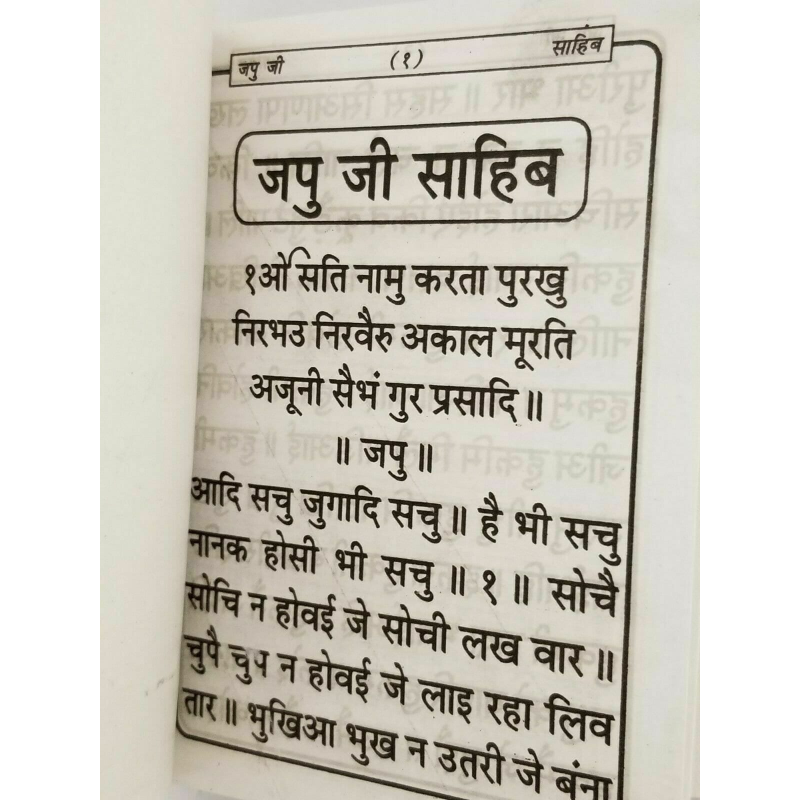 जपु जी (१) साहिंब
जपु जी साहिब
१ओं सति नामु करता पुरखु
निरभउ निरवैरु अकाल मूरति
अजूनी सैभं गुर प्रसादि॥
॥ जपु॥
आदि सचु जुगादि सचु॥ है भी सचु
नानक होसी भी सचु ॥१॥ सोचै
सोचि न होवई जे सोची लख वार॥
चुपै चुप न होवई जे लाइ रहा लिव
तार॥ भुखिआ भुख न उतरी जे बंना